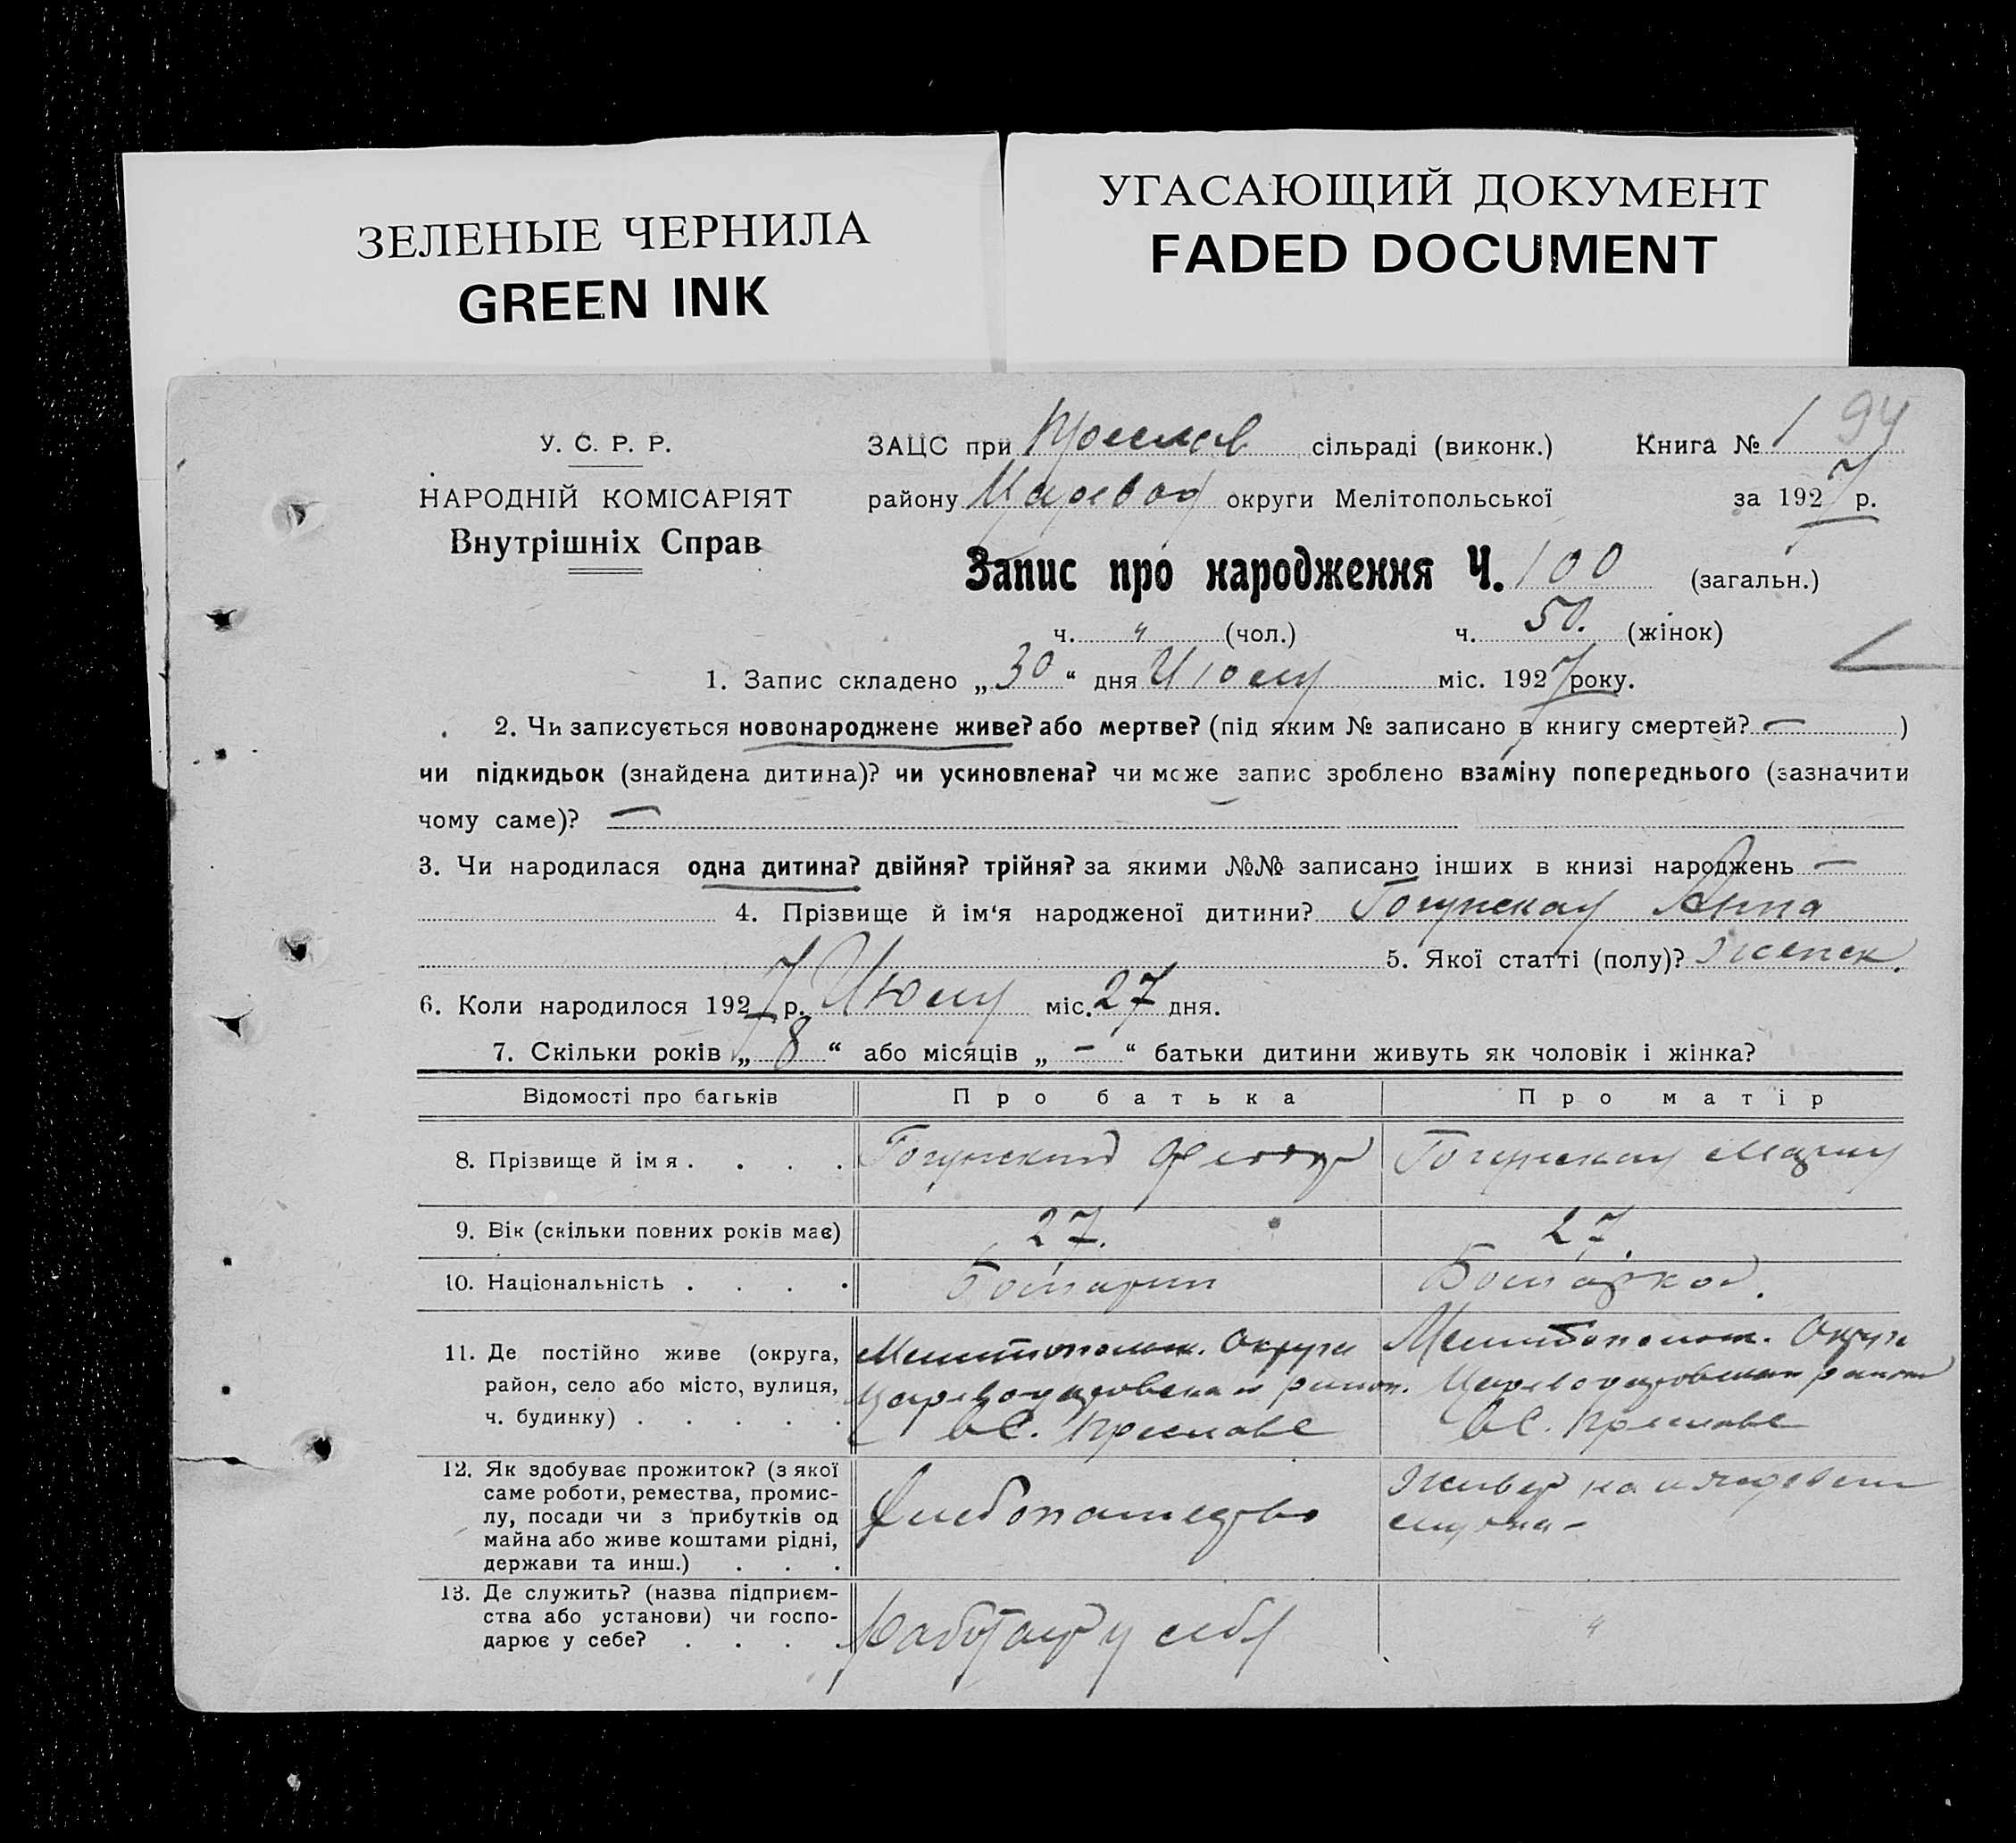 ЗЕЛЕНЫЕ ЧЕРНИЛА
GREEN INK
УГАСАЮЩИЙ ДОКУМЕНТ
FADED DOCUMENT
У. С. Р. Р.
НАРОДНІЙ КОМІСАРІЯТ
Внутрішніх Справ
ЗАЦС при Преслав сільраді (виконк.) Книга № 1 94
району Царевод округи Мелітопольської за 1927 р.
Запис про народження Ч. 100 (загальн.)
ч. " (чол.) ч. 50. (жінок)
1. Запис складено „30“ дня Июля міс. 1927 року.
2. Чи записується новонароджене живе? або мертве? (під яким № записано в книгу смертей? — )
чи підкидьок (знайдена дитина)? чи усиновлена? чи може запис зроблено взаміну попереднього (зазначити
чому саме)? —
3. Чи народилася одна дитина? двійня? трійня? за якими №№ записано інших в книзі народжень —
4. Прізвище й ім‘я народженої дитини? Гогунская Анна
5. Якої статті (полу)? Женск.
6. Коли народилося 1927 р. Июля міс. 27 дня.
7. Скільки років „8“ або місяців „-“ батьки дитини живуть як чоловік і жінка?
Відомості про батьків Про батька Про матір
8. Прізвище й ім я . . . . Гогунский Федор Гогунская Мария
9. Вік (скільки повних років має) 27. 27.
10. Національність . . . . Болгарин Болгаркой.
11. Де постійно живе (округа, район, село або місто, вулиця, ч. будинку) . . . . .
Мелитопольск. Округа Мелитопольск. Округа
Цареводаровского район. Цареводаровского район
в С. Преславе в С. Преславе
12. Як здобуває прожиток? (з якої
саме роботи, ремества, промис-
лу, посади чи з прибутків од
майна або живе коштами рідні,
держави та инш.) . . .
Хлебопашество Живет на иждевении
мужа-
13. Де служить? (назва підприєм-
ства або установи) чи госпо-
дарює у себе? . . . .
Работает у себя "